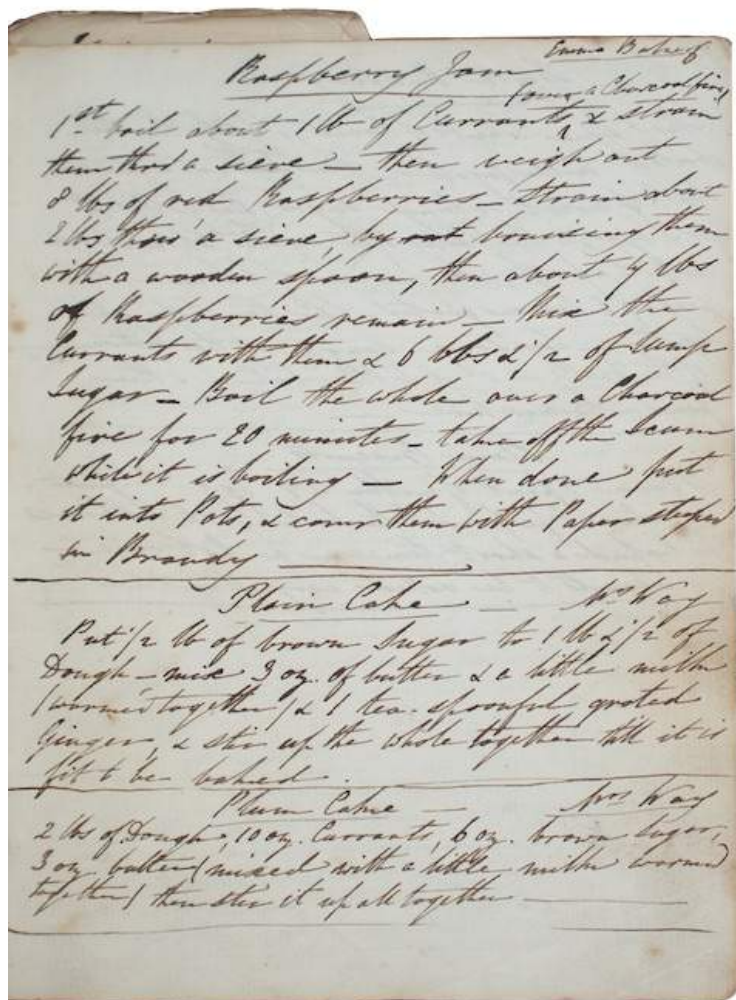 Emma
Raspberry Jam
(over a Charcoal fire)
1st boil about 1 lb of Currants, & strain
them thro' a sieve — then weigh out
8 lbs of red Raspberries — strain about
2 lbs thro' a sieve, by bruising them
with a wooden spoon, then about 4 lbs
of Raspberries remain — Mix the
Currants with them & 6 lbs & 1/2 of lump
Sugar — Boil the whole over a Charcoal
fire for 20 minutes — take off the Scum
while it is boiling — When done put
it into Pots, & cover them with Paper steeped
in Brandy
Plain Cake — Mrs Way
Put 1/2 lb of brown Sugar to 1 lb & 1/2 of
Dough — mix 3 oz. of butter & a little milk
(warmed together) & 1 tea-spoonful grated
Ginger, & stir up the whole together till it is
fit to be baked.
Plum Cake — Mrs Way
2 lbs of Dough, 10 oz. Currants, 6 oz. brown Sugar,
3 oz butter (mixed with a little milk warmed
together) then stir it up all together